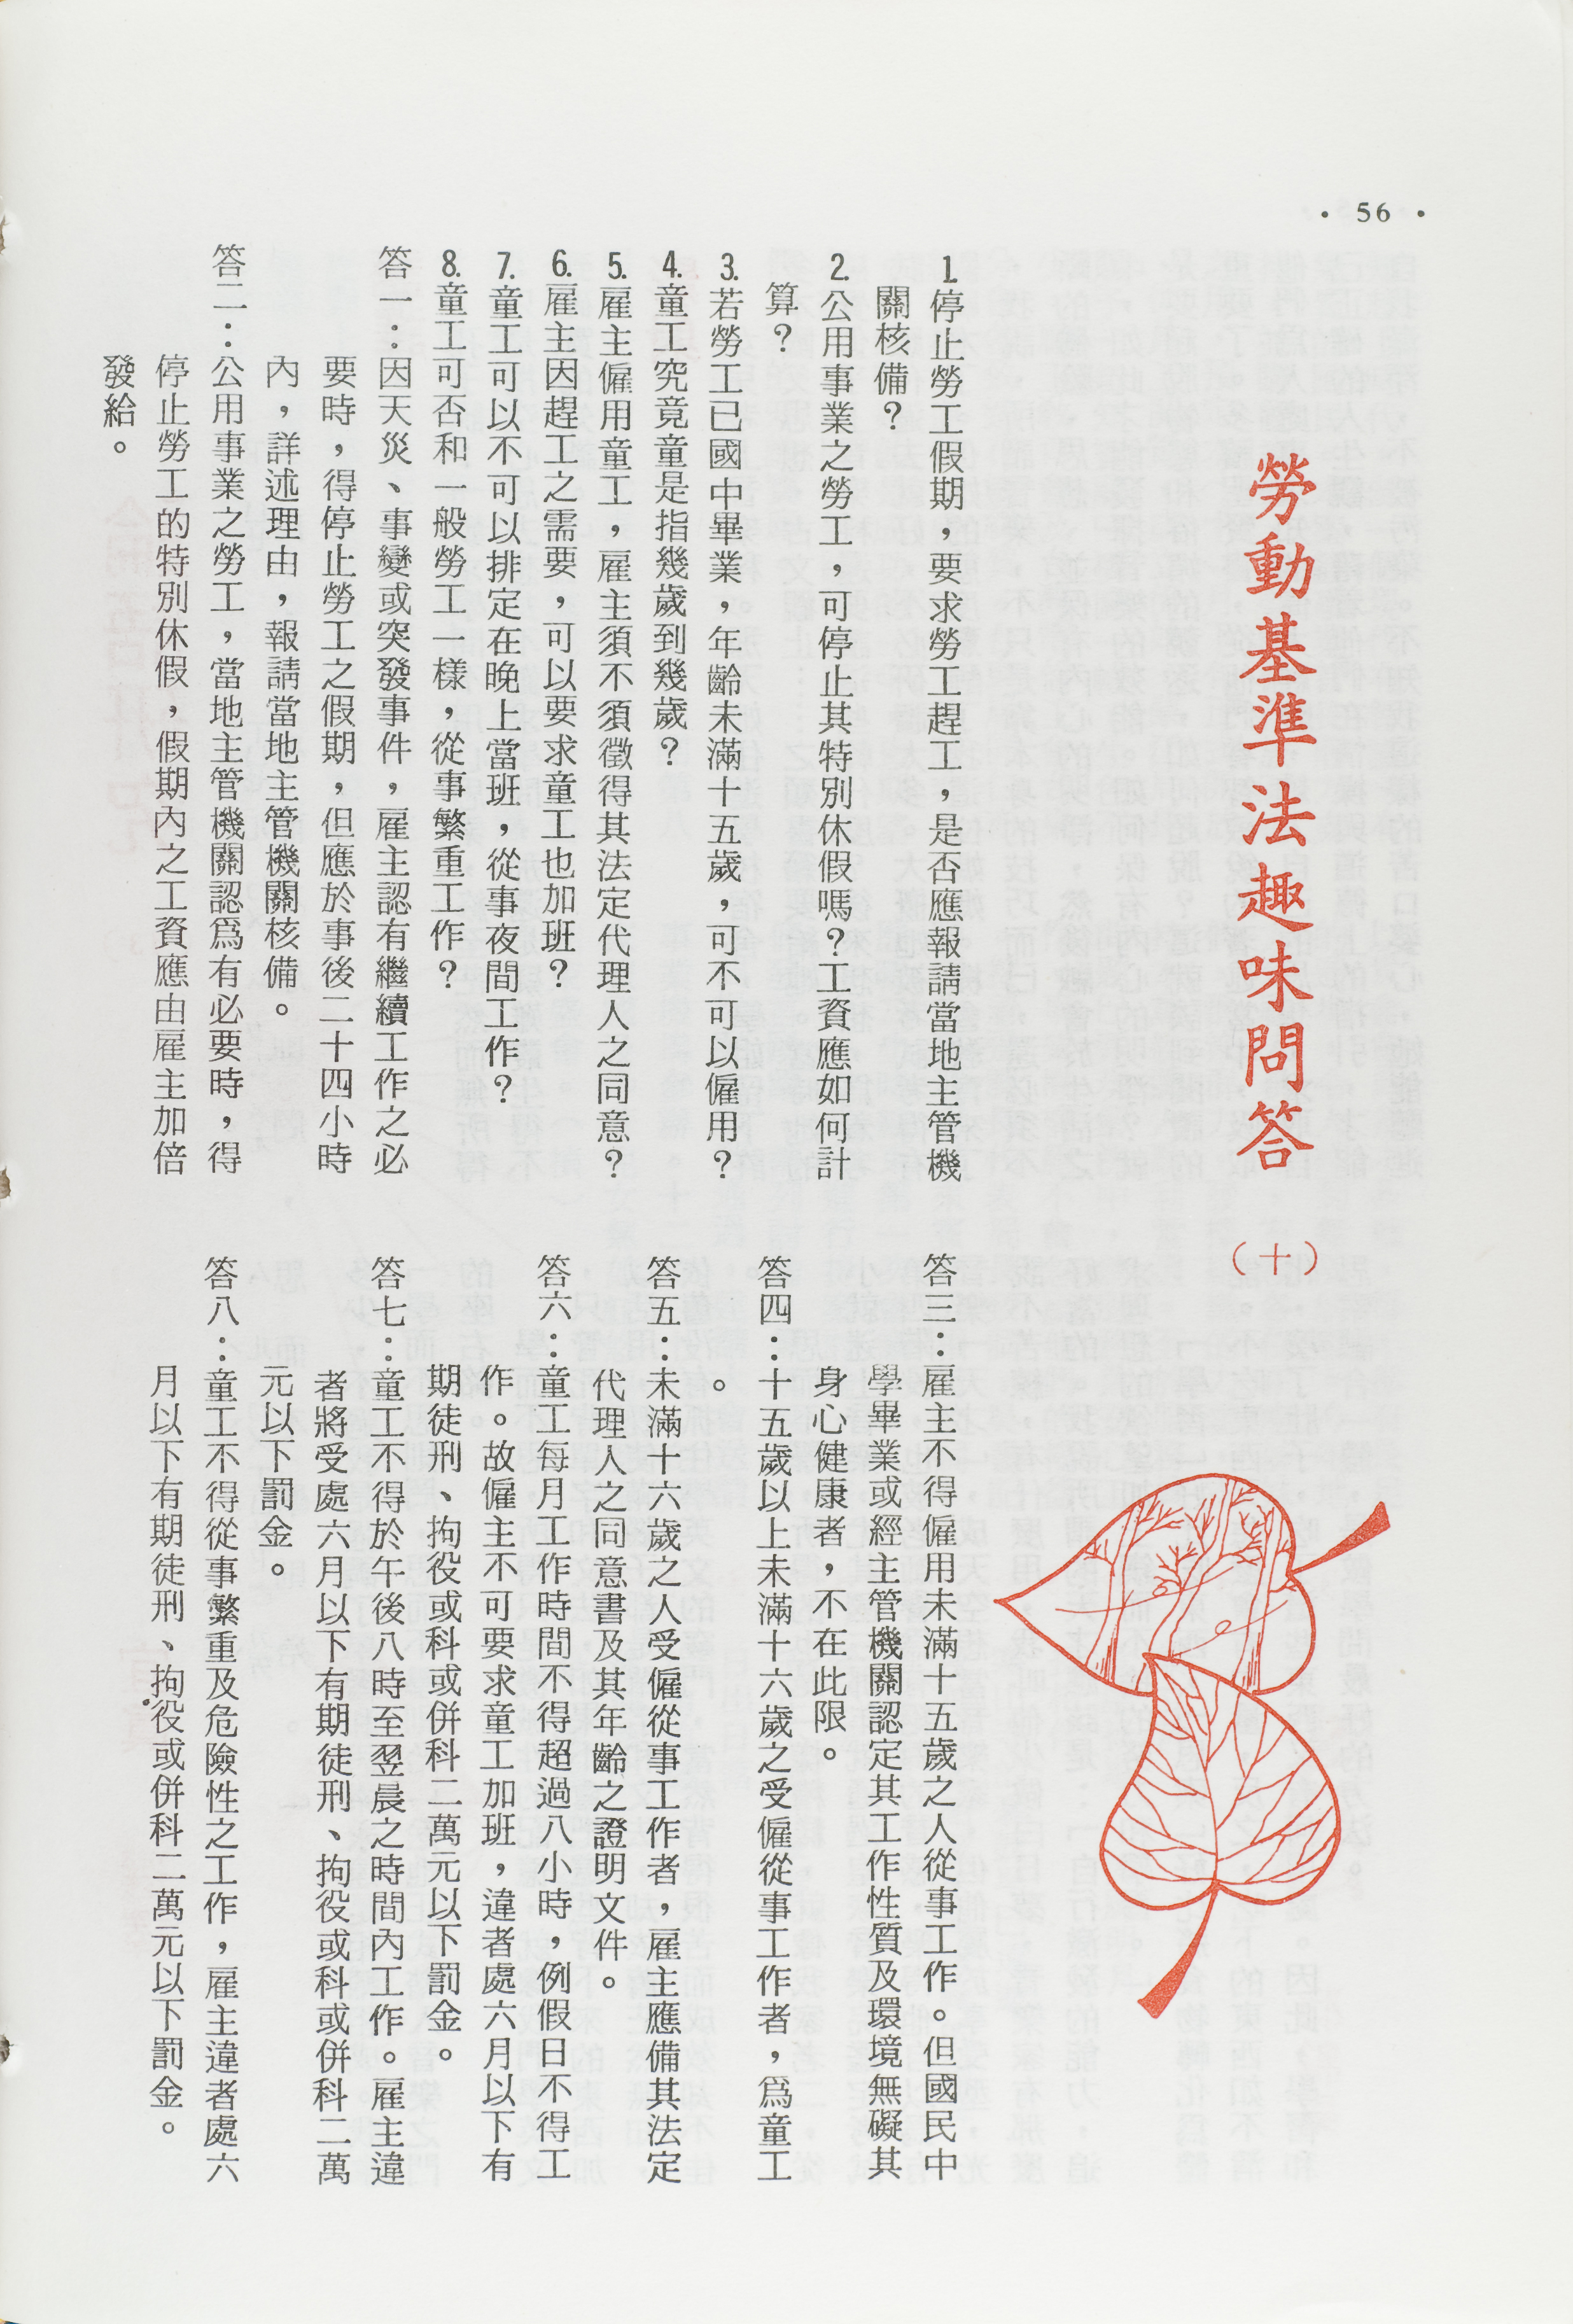 • 56 •
勞動基準法趣味問答（十）
1.停止勞工假期，要求勞工趕工，是否應報請當地主管機
關核備？
2.公用事業之勞工，可停止其特別休假嗎？工資應如何計
算？
3.若勞工已國中畢業，年齡未滿十五歲，可不可以僱用？
4.童工究竟童是指幾歲到幾歲？
5.雇主僱用童工，雇主須不須徵得其法定代理人之同意？
6.雇主因趕工之需要，可以要求童工也加班？
7.童工可以不可以排定在晚上當班，從事夜間工作？
8.童工可否和一般勞工一樣，從事繁重工作？
答一：因天災、事變或突發事件，雇主認有繼續工作之必
要時，得停止勞工之假期，但應於事後二十四小時
內，詳述理由，報請當地主管機關核備。
答二：公用事業之勞工，當地主管機關認爲有必要時，得
停止勞工的特別休假，假期內之工資應由雇主加倍
發給。
答三：雇主不得僱用未滿十五歲之人從事工作。但國民中
學畢業或經主管機關認定其工作性質及環境無礙其
身心健康者，不在此限。
答四：十五歲以上未滿十六歲之受僱從事工作者，爲童工
。
答五：未滿十六歲之人受僱從事工作者，雇主應備其法定
代理人之同意書及其年齡之證明文件。
答六：童工每月工作時間不得超過八小時，例假日不得工
作。故僱主不可要求童工加班，違者處六月以下有
期徒刑、拘役或科或併科二萬元以下罰金。
答七：童工不得於午後八時至翌晨之時間內工作。雇主違
者將受處六月以下有期徒刑、拘役或科或併科二萬
元以下罰金。
答八：童工不得從事繁重及危險性之工作，雇主違者處六
月以下有期徒刑、拘役或併科二萬元以下罰金。